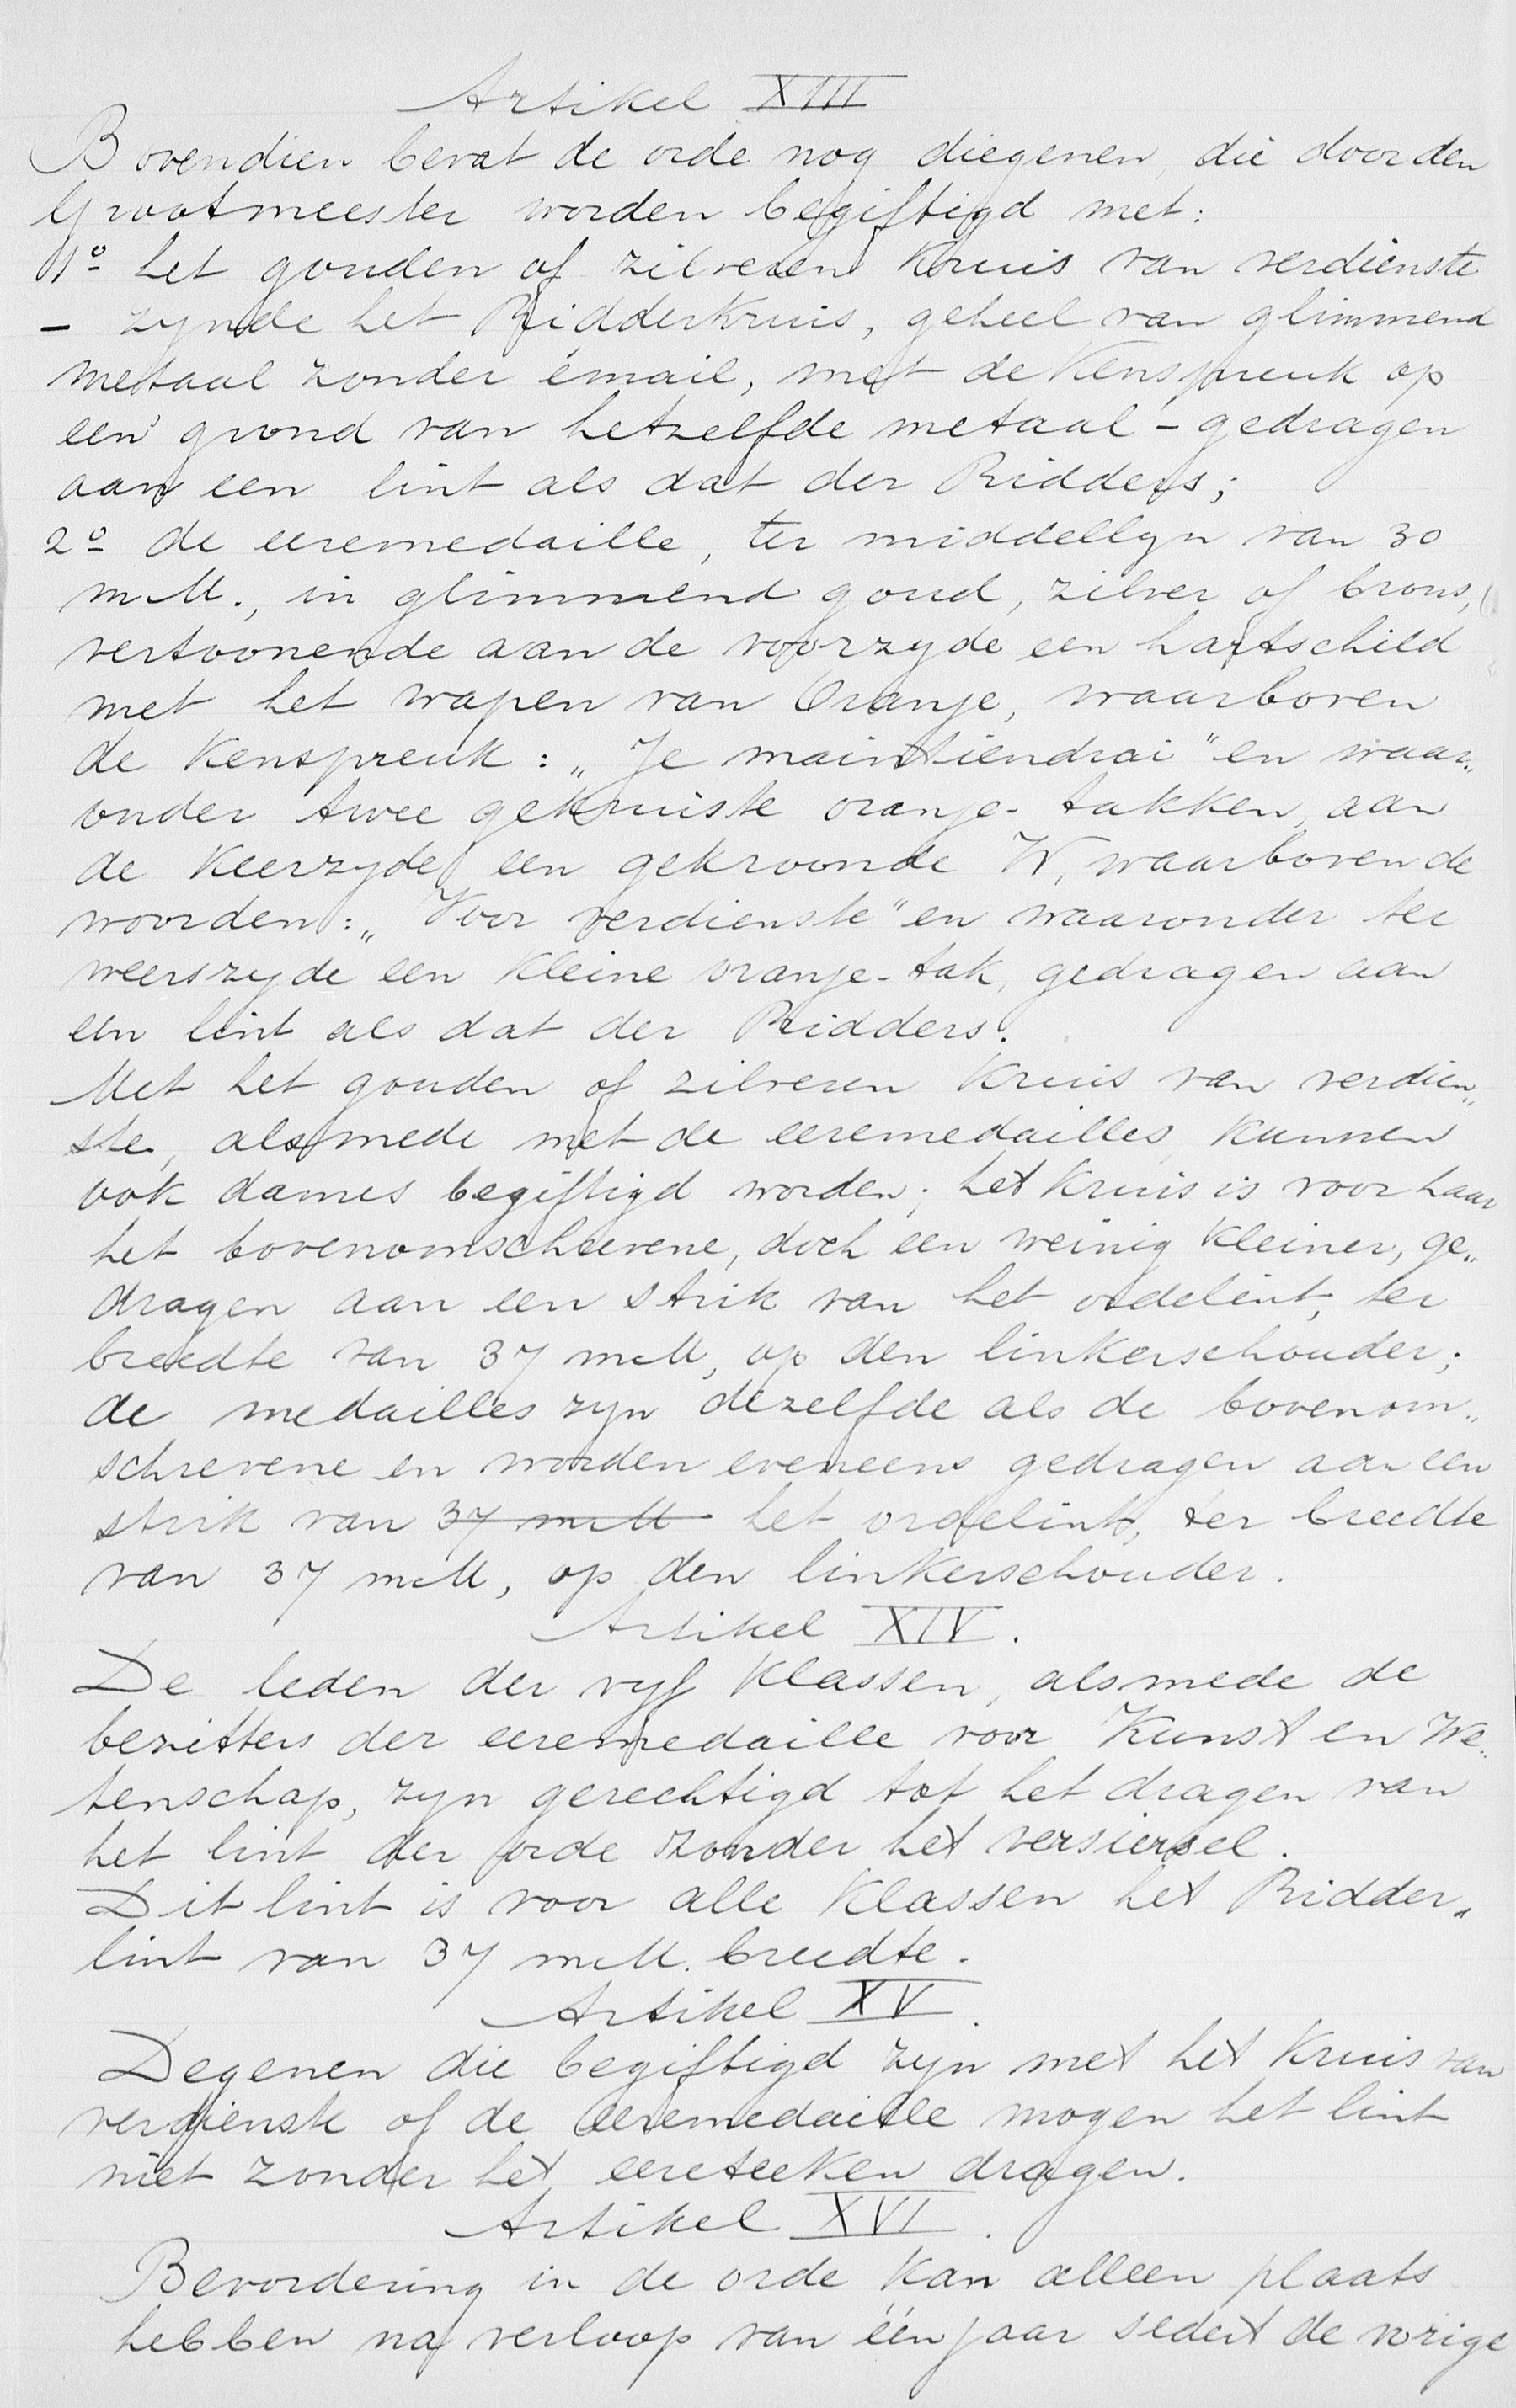 Artikel XIII
Bovendien bevat de orde nog diegenen, die door den
Grootmeester worden begiftigd met:
1o het gouden of zilveren Kruis van verdienste
- zynde het Ridderkruis, geheel van glimmend
metaal zonder émail, met de Kenspreuk op
een grond van hetzelfde metaal - gedragen
aan een lint als dat der Ridders;
2o de eeremedaille, ter middellyn van 30
m.M., in glimmend goud, zilver of brons,
vertoonende aan de voorzyde een hartschild
met het wapen van Oranje, waarboven
de Kenspreuk: „Je maintiendrai" en waar„
onder twee gekruiste oranje-takken, aan
de Keerzyde een gekroonde W, waarboven de
woorden: „Voor verdienste" en waaronder ter
weerszyde een kleine oranje-tak, gedragen aan
een lint als dat der Ridders.
Met het gouden of zilveren Kruis van verdien„
ste, alsmede met de eeremedailles, kunnen
ook dames begiftigd worden; het Kruis is voor haar
het bovenomschrevene, doch een weinig kleiner, ge„
dragen aan een strik van het ordelint, ter
breedte van 37 m.M, op den linkerschouder;
de medailles zyn dezelfde als de bovenom„
schrevene en worden eveneens gedragen aan een
strik van 37 m.M het ordelint, ter breedte
van 37 m.M, op den linkerschouder.
Artikel XIV.
De leden der vyf Klassen, alsmede de
bezitters der eeremedaille voor Kunst en We„
tenschap, zyn gerechtigd tot het dragen van
het lint der orde zonder het versiersel.
Dit lint is voor alle Klassen het Ridder„
lint van 37 m.M. breedte.
Artikel XV.
Degenen die begiftigd zyn met het Kruis van
verdienste of de eeremedaille mogen het lint
niet zonder het eereteeken dragen.
Artikel XVI.
Bevordering in de orde kan alleen plaats
hebben na verloop van één jaar sedert de vorige